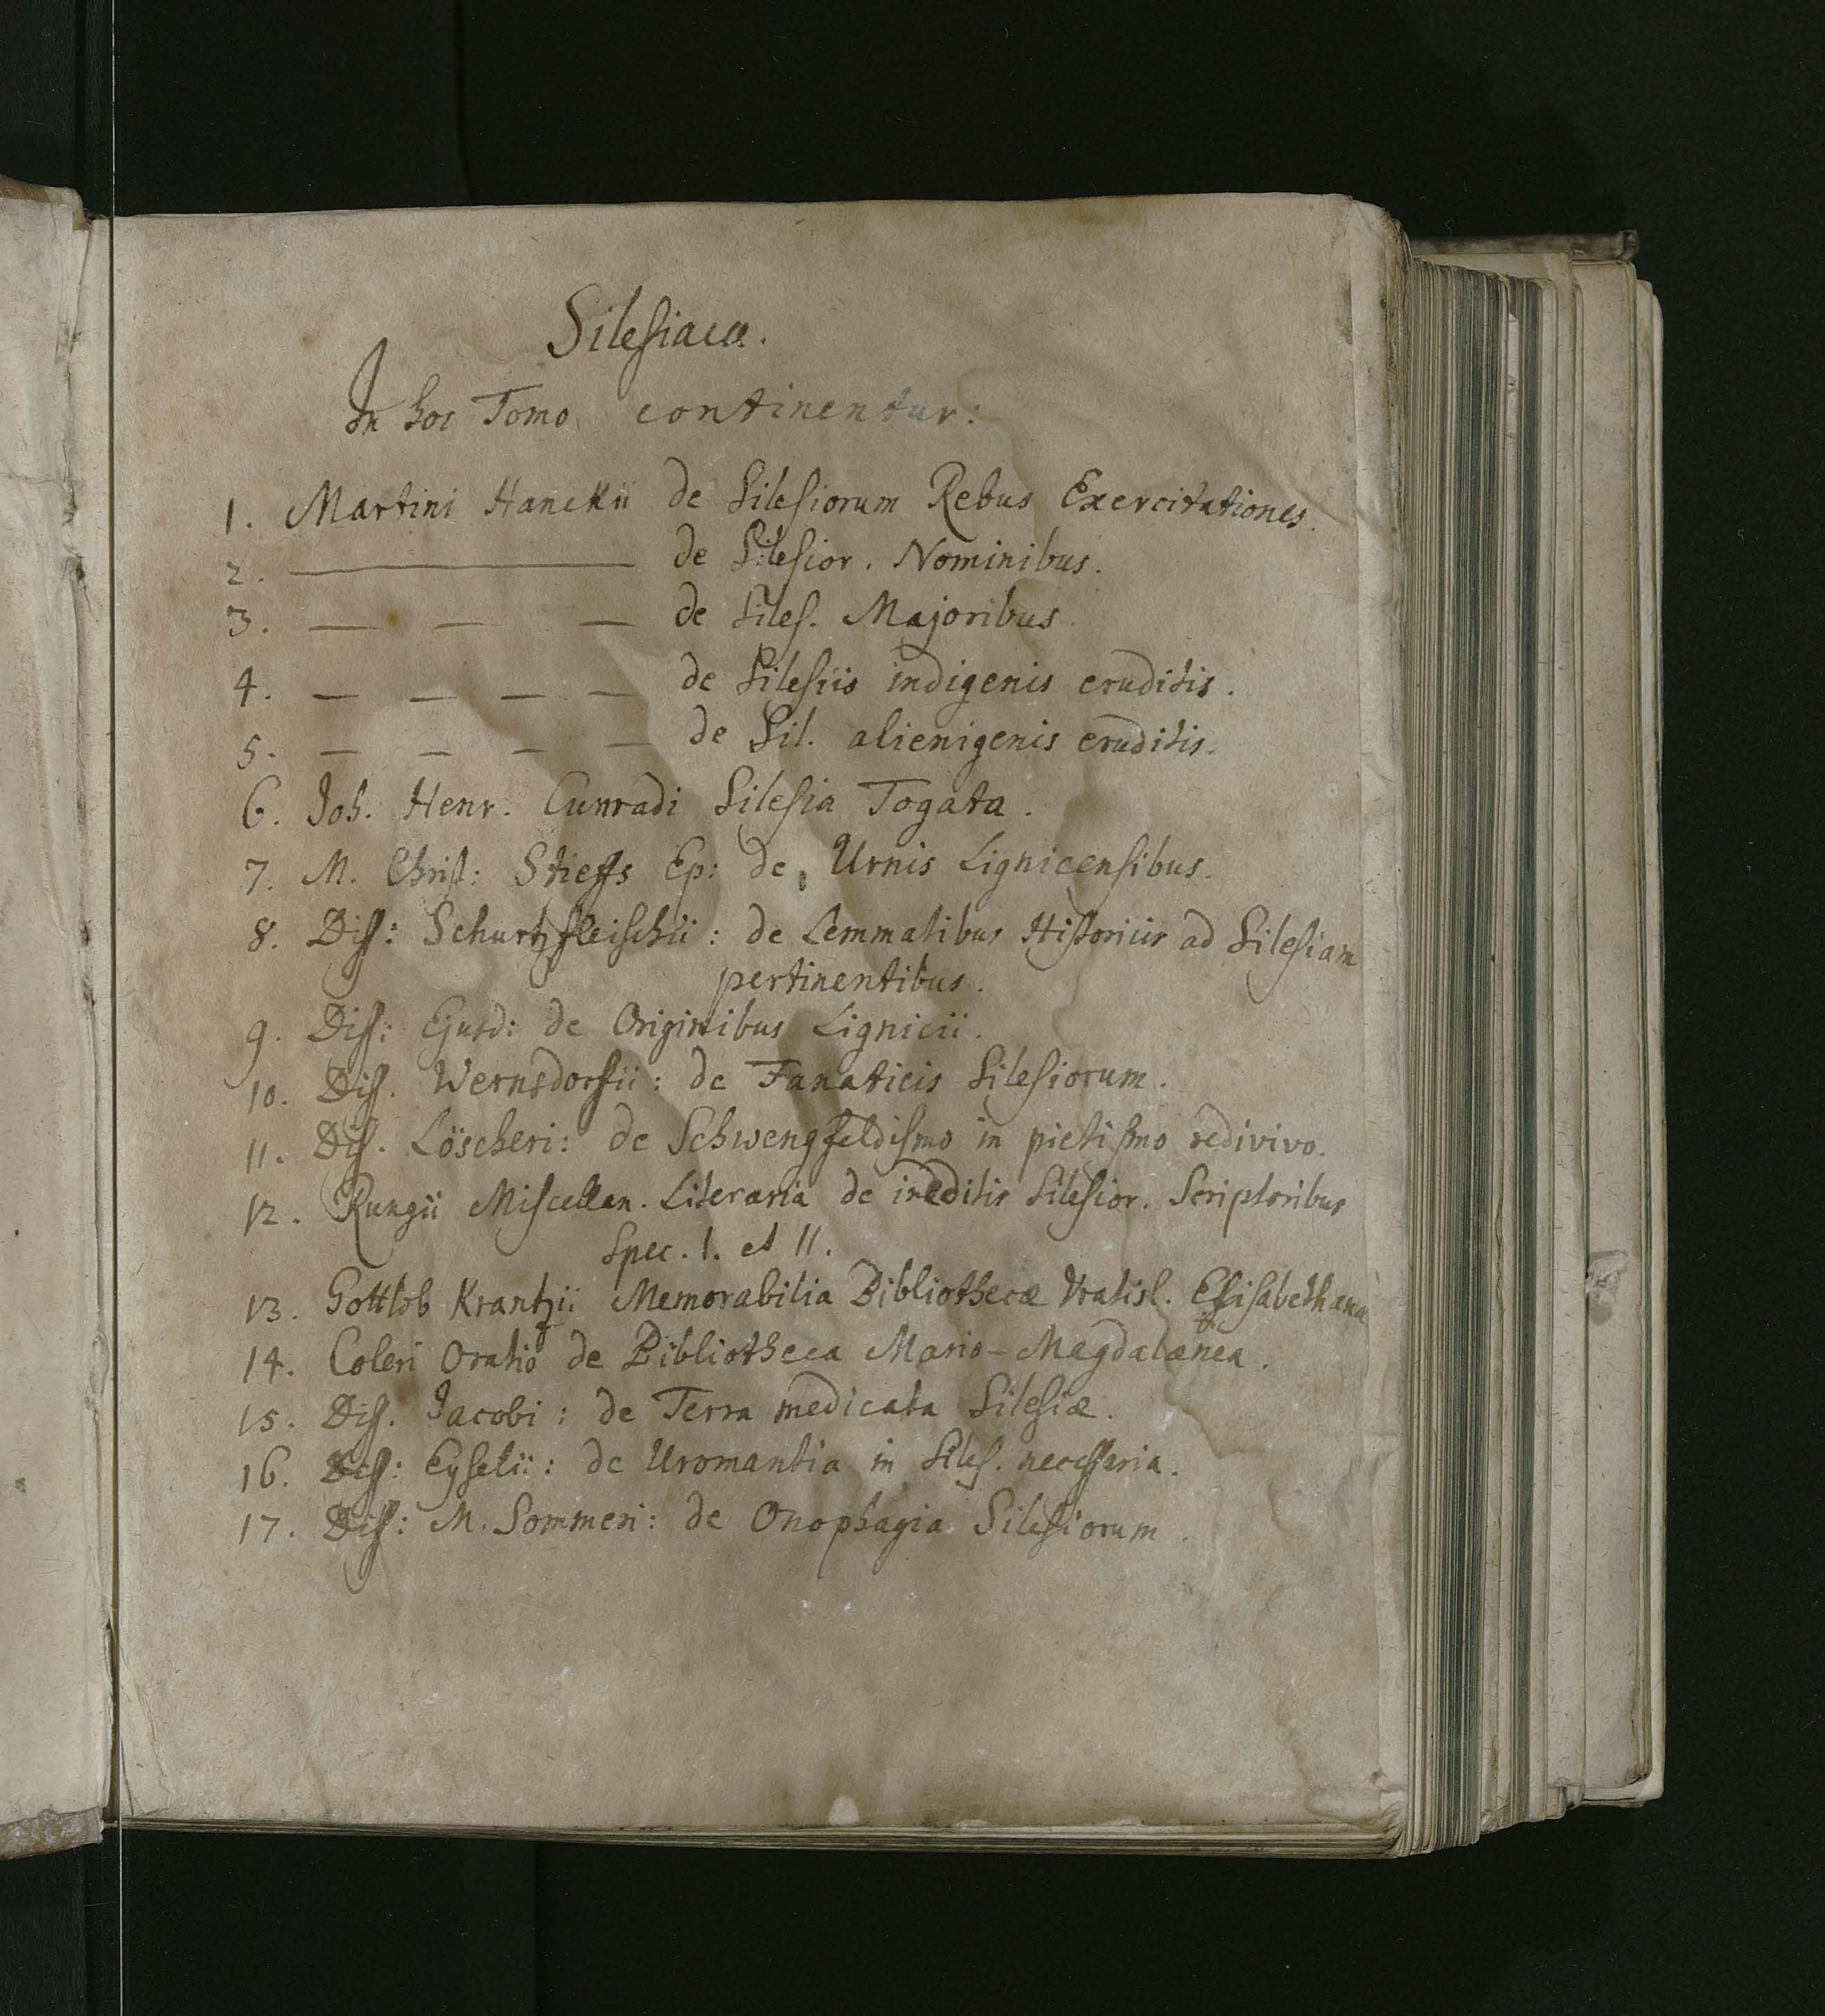 Silesiaca.
In hoc Tomo continentur:
1. Martini Hanckii de Silesiorum Rebus Exercitationes.
2. ——— de Silesior. Nominibus.
3. — — — de Siles. Majoribus.
4. — — — — de Silesiis indigenis eruditis.
5. — — — — de Sil. alienigenis eruditis.
6. Joh. Henr. Cunradi Silesia Togata.
7. M. Christ: Stieffs Ep: de Urnis Lignicensibus.
8. Diss: Schurtzfleischii: de Lemmatibus Historiis ad Silesiam
pertinentibus.
9. Diss: Ejusd: de Originibus Lignicii.
10. Diss. Wernsdorfii: de Fanaticis Silesiorum.
11. Diss. Löscheri: de Schwengfeldismo in pietismo redivivo.
12. Rungii Miscellan. Literaria de ineditis Silesior. Scriptoribus
Spec. I. et II.
13. Gottlob Krantzii Memorabilia Bibliothecæ Vratisl. Elisabethanæ
14. Coleri Oratio de Bibliotheca Mario-Magdalænea.
15. Diss. Jacobi: de Terra medicata Silesiæ.
16. Diss: Eyselii: de Uromantia in Siles. necessaria.
17. Diss: M. Sommeri: de Onophagia Silesiorum.